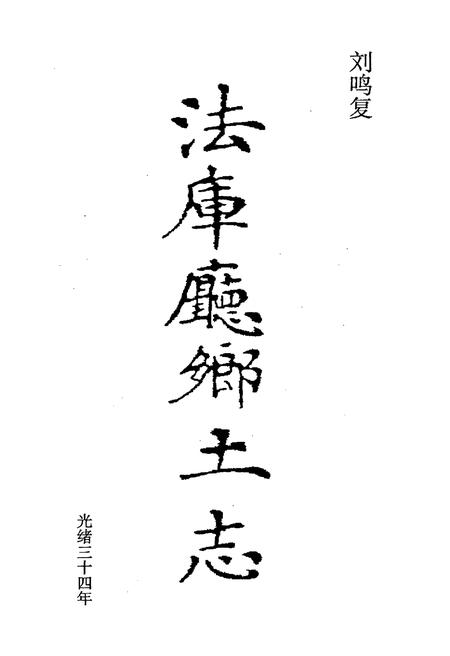 刘鸣复
法庫廳鄉土志
光绪三十四年